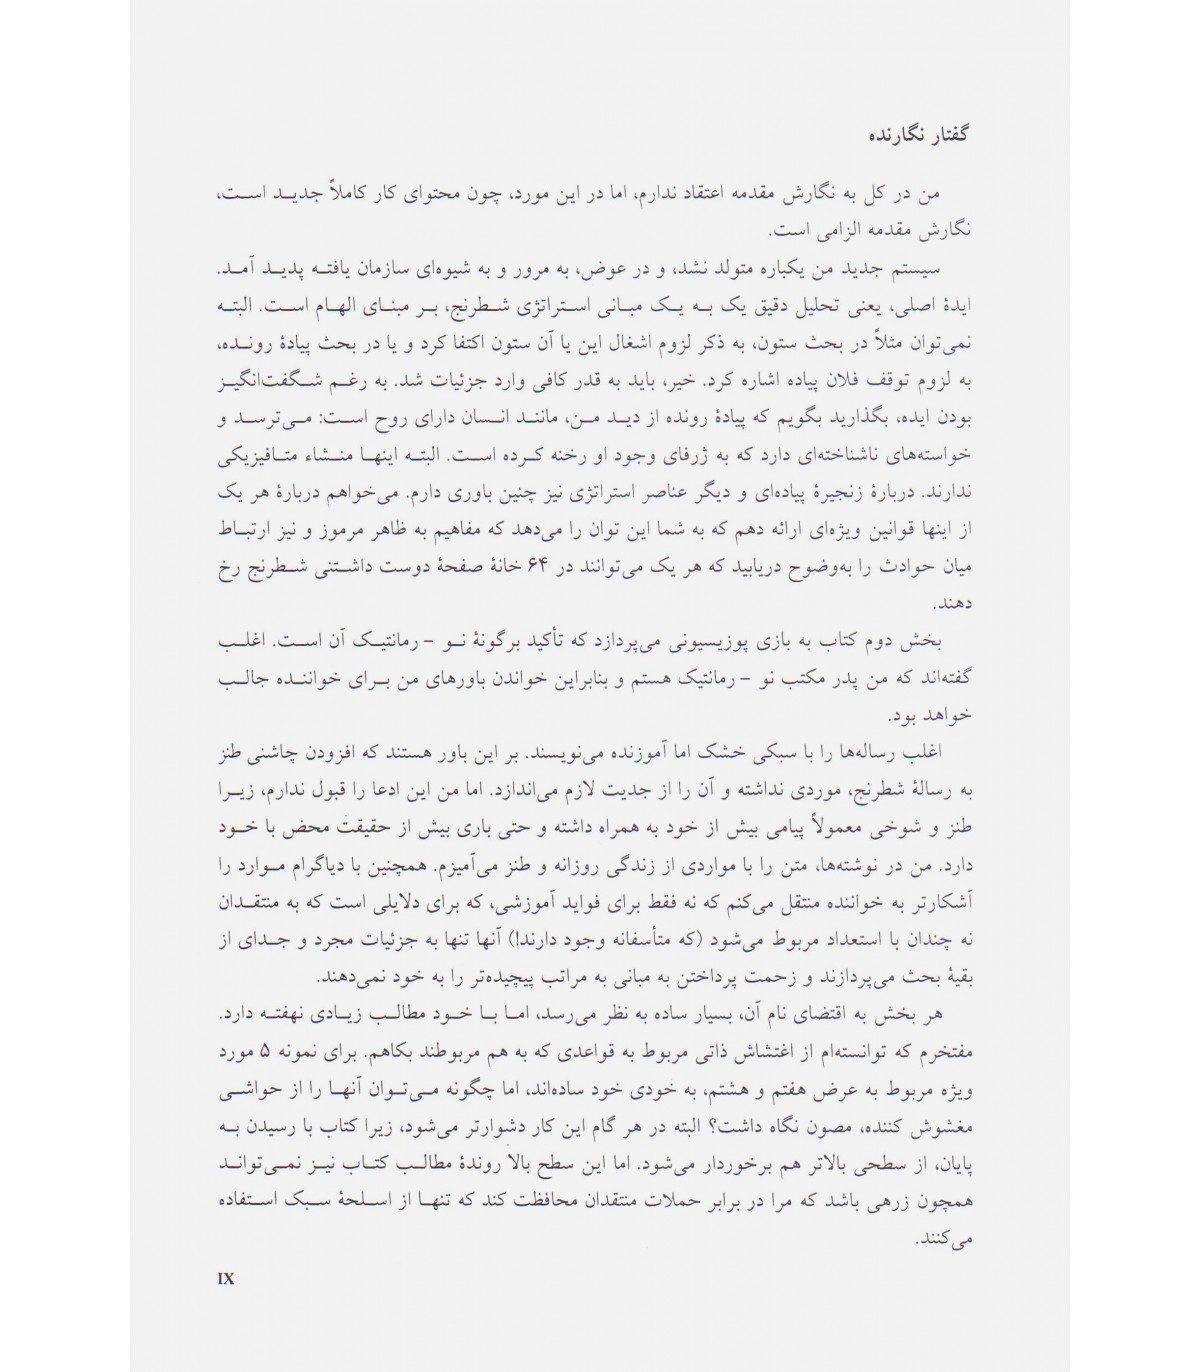 گفتار نگارنده
من در کل به نگارش مقدمه اعتقاد ندارم، اما در این مورد، چون محتوای کار کاملاً جدید است،
نگارش مقدمه الزامی است.
سیستم جدید من یکباره متولد نشد، و در عوض، به مرور و به شیوه‌ای سازمان یافته پدید آمد.
ایدهٔ اصلی، یعنی تحلیل دقیق یک به یک مبانی استراتژی شطرنج، بر مبنای الهام است. البته
نمی‌توان مثلاً در بحث ستون، به ذکر لزوم اشغال این یا آن ستون اکتفا کرد و یا در بحث پیادهٔ رونده،
به لزوم توقف فلان پیاده اشاره کرد. خیر، باید به قدر کافی وارد جزئیات شد. به رغم شگفت‌انگیز
بودن ایده، بگذارید بگویم که پیادهٔ رونده از دید من، مانند انسان دارای روح است: می‌ترسد و
خواسته‌های ناشناخته‌ای دارد که به ژرفای وجود او رخنه کرده است. البته اینها منشاء متافیزیکی
ندارند. دربارهٔ زنجیرهٔ پیاده‌ای و دیگر عناصر استراتژی نیز چنین باوری دارم. می‌خواهم دربارهٔ هر یک
از اینها قوانین ویژه‌ای ارائه دهم که به شما این توان را می‌دهد که مفاهیم به ظاهر مرموز و نیز ارتباط
میان حوادث را به‌وضوح دریابید که هر یک می‌توانند در ۶۴ خانهٔ صفحهٔ دوست داشتنی شطرنج رخ
دهند.
بخش دوم کتاب به بازی پوزیسیونی می‌پردازد که تأکید برگونهٔ نو – رمانتیک آن است. اغلب
گفته‌اند که من پدر مکتب نو – رمانتیک هستم و بنابراین خواندن باورهای من برای خواننده جالب
خواهد بود.
اغلب رساله‌ها را با سبکی خشک اما آموزنده می‌نویسند. بر این باور هستند که افزودن چاشنی طنز
به رسالهٔ شطرنج، موردی نداشته و آن را از جدیت لازم می‌اندازد. اما من این ادعا را قبول ندارم، زیرا
طنز و شوخی معمولاً پیامی بیش از خود به همراه داشته و حتی باری بیش از حقیقت محض با خود
دارد. من در نوشته‌ها، متن را با مواردی از زندگی روزانه و طنز می‌آمیزم. همچنین با دیاگرام موارد را
آشکارتر به خواننده منتقل می‌کنم که نه فقط برای فواید آموزشی، که برای دلایلی است که به منتقدان
نه چندان با استعداد مربوط می‌شود (که متأسفانه وجود دارند!) آنها تنها به جزئیات مجرد و جدای از
بقیهٔ بحث می‌پردازند و زحمت پرداختن به مبانی به مراتب پیچیده‌تر را به خود نمی‌دهند.
هر بخش به اقتضای نام آن، بسیار ساده به نظر می‌رسد، اما با خود مطالب زیادی نهفته دارد.
مفتخرم که توانسته‌ام از اغتشاش ذاتی مربوط به قواعدی که به هم مربوطند بکاهم. برای نمونه ۵ مورد
ویژه مربوط به عرض هفتم و هشتم، به خودی خود ساده‌اند، اما چگونه می‌توان آنها را از حواشی
مغشوش کننده، مصون نگاه داشت؟ البته در هر گام این کار دشوارتر می‌شود، زیرا کتاب با رسیدن به
پایان، از سطحی بالاتر هم برخوردار می‌شود. اما این سطح بالا روندهٔ مطالب کتاب نیز نمی‌تواند
همچون زرهی باشد که مرا در برابر حملات منتقدان محافظت کند که تنها از اسلحهٔ سبک استفاده
می‌کنند.
IX